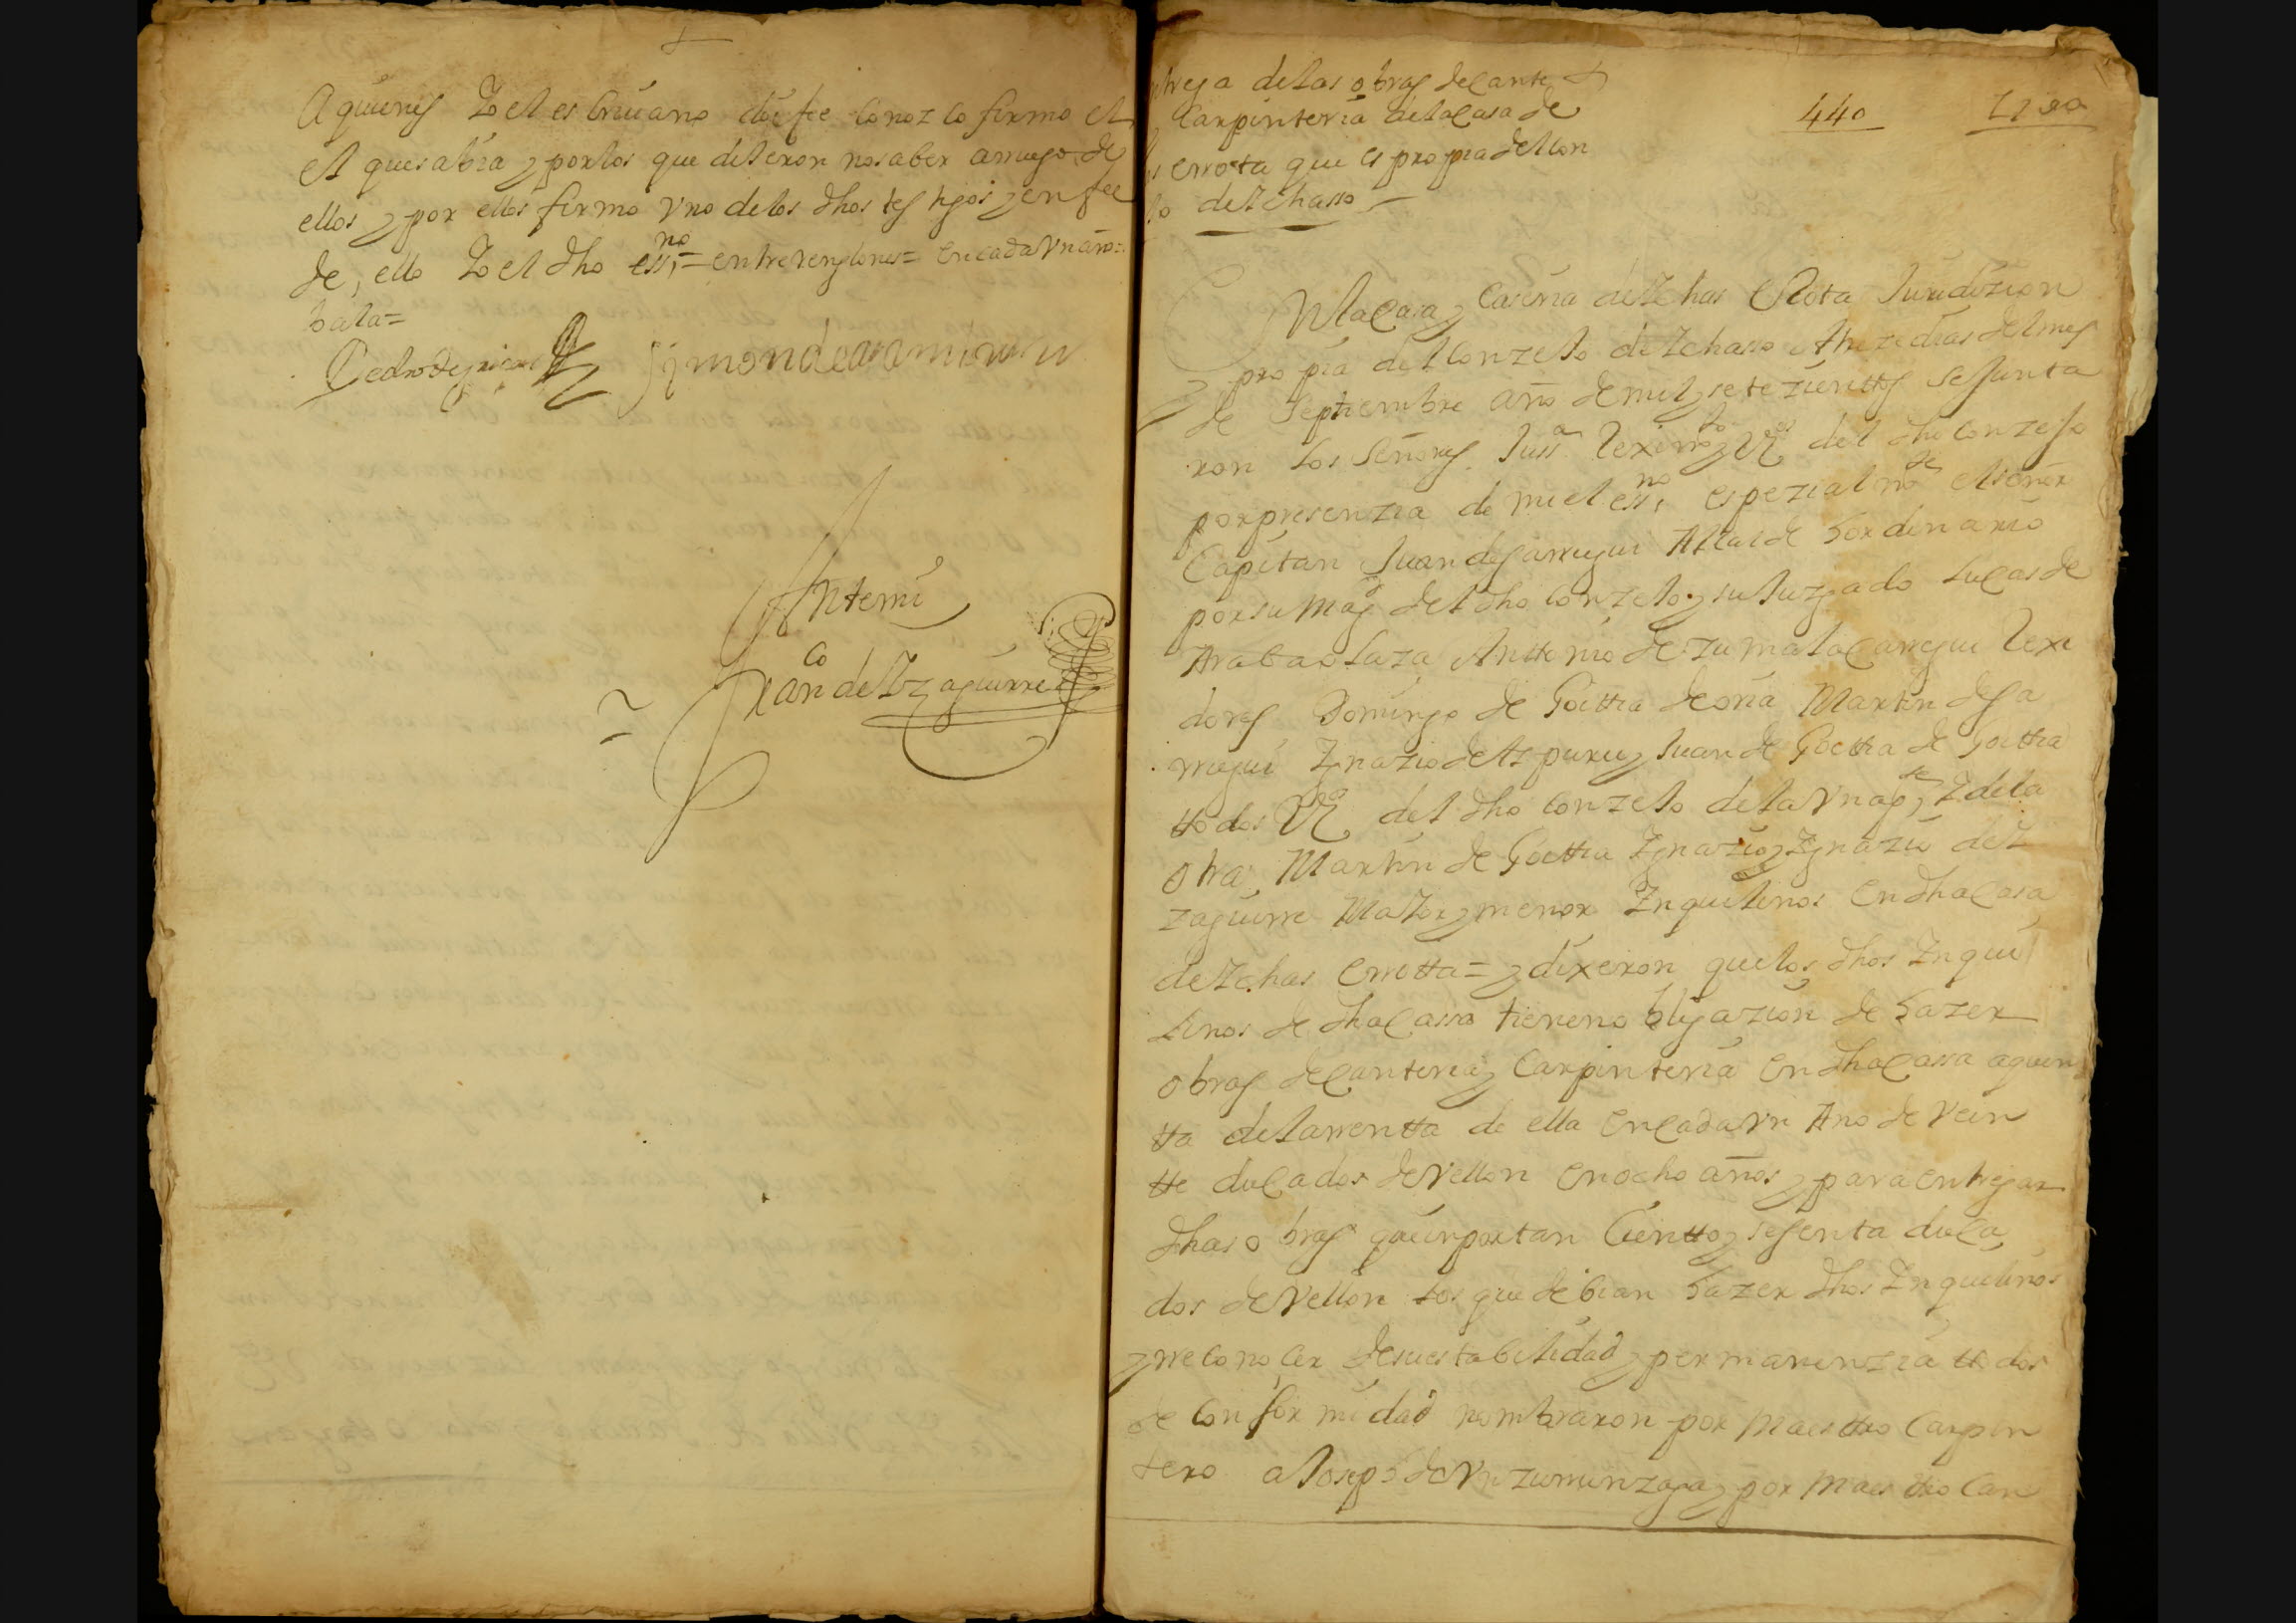 Aquienes Yo el escriuano doi fee conozco firmo el
el que sabia y por los que dixeron no saber a rruego de
ellos y por ellos firmo Vno de los dhos testigos y en fee
de, ello Yo el dho essno = entre renglones = en cada Vn año =
bala =
Pedro de
Simon de
Ante mi
Franco de Yzaguirre
entrega de las obras de cante
Carpinteria de la Casa de
errota que es propia del con
de Ychasso
440
En la Casa y Caseria de Ychas Errota Jurisdizion
y propia del Conzejo de Ychasso a treze dias del mes
de Septiembre año de mil y setezientos se Junta
ron los Señores Jussa rexim.to y Vos del dho conzejo
por presenzia de mi el essno espezialm.te el señor
Capitan Juan de Sarregui Alcalde hordinario
por su Magd del dho Conzejo y su Juzgado Lucas de
Arabaolaza Anttonio de Zumalacarregui rexi
dores Domingo de Goittia de oria Martin de Sa
rregui Ygnazio de Aspuru y Juan de Goittia de Goittia
ttodos Vos del dho Conzejo de la Vna pte, Y de la
otra Martin de Goittia Ygnazio y Ygnazio de Y
zaguirre Maior y menor Ynquilinos en dha Casa
de Ychas errotta = y dixeron que los dhos Ynqui
linos de dha Cassa tienen obligazion de hazer
obras de Canteria y Carpinteria en dha Cassa a quen
tta de la rrentta de ella en Cada Vn Año de Vein
tte ducados de Vellon en ocho años y para entregar
dhas obras que inportan Cientto y sesenta duca
dos de Vellon los que debian hazer dhos Ynquilinos
y rreconocer de su estabilidad y permanenzia ttodos
de Conformidad nombraron por Maesttro Carpin
tero a Joseph de Vnzurrunzaga y por Maesttro Can